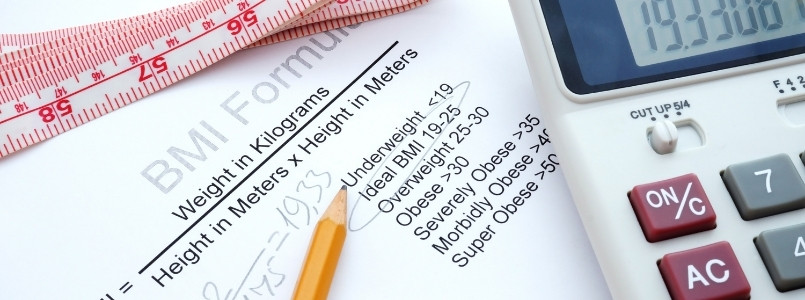 BMI Formula
Weight in Kilograms
Height in Meters x Height in Meters
=
=19,33
Underweight <19
Ideal BMI 19-25
Overweight 25-30
Obese >30
Severely Obese >35
Morbidly Obese >40
Super Obese >50
58
57
146
145
144
CUT UP 5/4
F 4 2
ON/C
7
AC
4